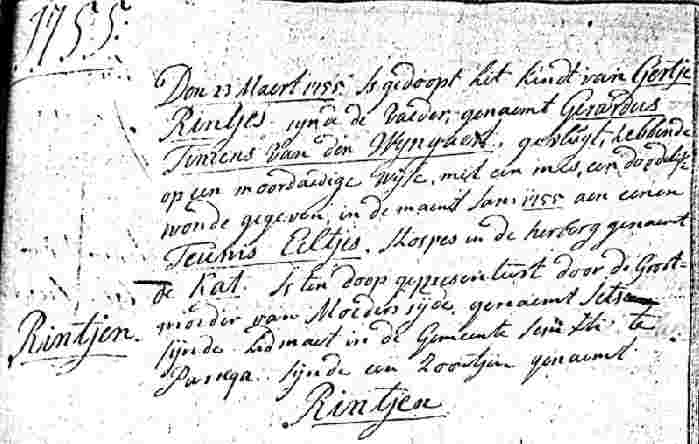 1755.
Den 23 Maert 1755. Is gedoopt het kindt van Gertje
Rintjes zynde de Vaeder, genaemt Girardus
Tinzens van den Wyngaert, gevlugt, hebbende
op een moordaedige wyse, met een mes, een doodelijke
wonde gegeven, in de maent Janij 1755 aen eenen
Teunis Eeltjes. Hospes in de herberg genaemt
de Kat. Is ten doop gepresenteert door de Groot-
moeder van Moeders sijde, genaemt
sijnde Lidmaet in de Gemeente te
sijnde een Zoontjen genaemt
Rintjen.
Rintjen